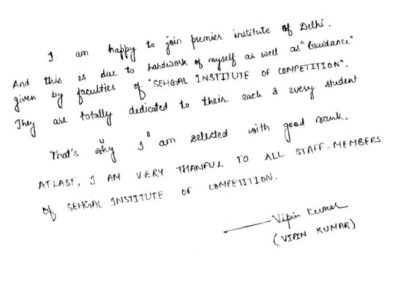 I am happy to join premier institute of Delhi.
And this is due to hardwork of myself as well as "Guidance"
given by faculties of "SEHGAL INSTITUTE OF COMPETITION".
They are totally dedicated to their each & every student
That's why I am selected with good rank.
AT LAST, I AM VERY THANFUL TO ALL STAFF-MEMBERS
OF SEHGAL INSTITUTE OF COMPETITION.
Vipin Kumar
(VIPIN KUMAR)